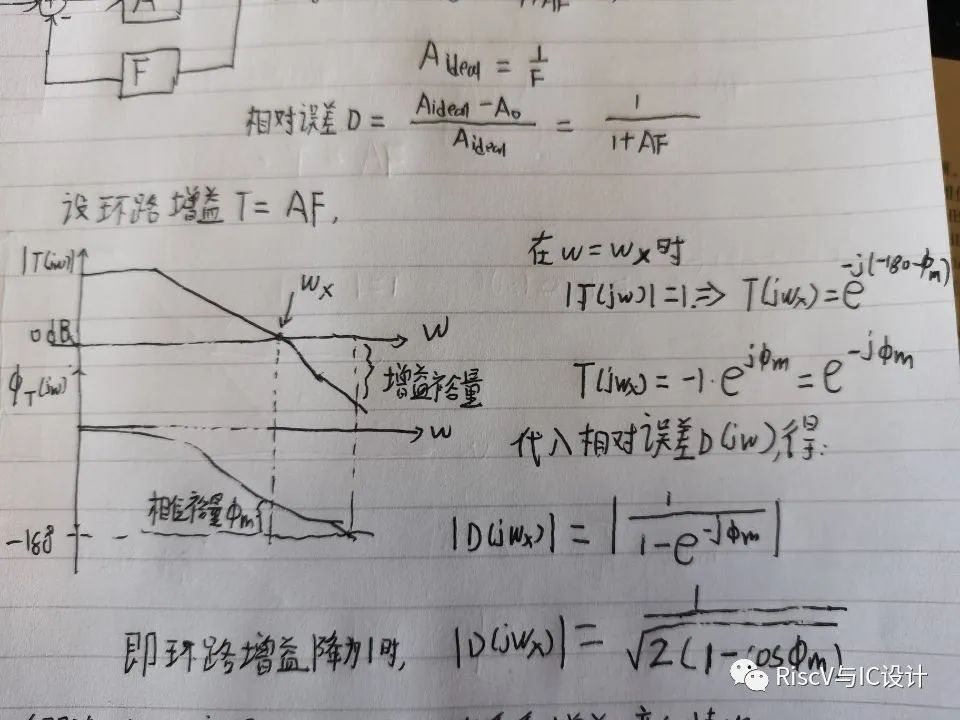 A
F
A ideal = 1/F
相对误差 D = (Aideal - A0)/Aideal = 1/(1+AF)
设环路增益 T = AF,
|T(jw)|
wx
0dB
w
增益裕量
ϕT(jw)
w
相位裕量ϕm
-180
在 w = wx 时
|T(jw)| = 1 => T(jwx) = e^-j(-180-ϕm)
T(jwx) = -1·e^jϕm = e^-jϕm
代入相对误差D(jw),得:
|D(jwx)| = |1/(1-e^-jϕm)|
即环路增益降为1时, |D(jwx)| = 1/√2(1-cosϕm)
RiscV与IC设计